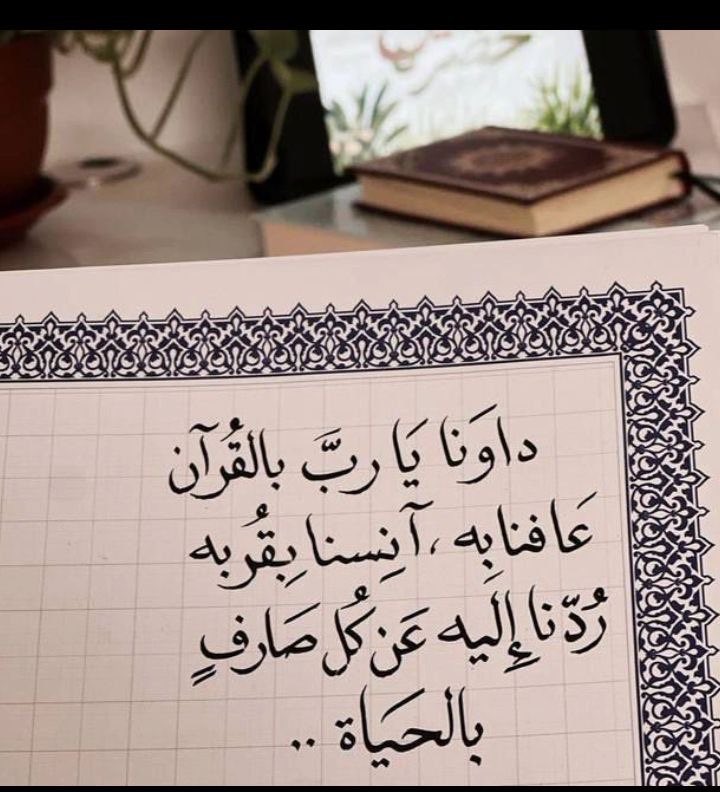 داوَنا يَا ربَّ بالقُرآن
عَافنا بِه ،آنِسنا بِقُربه
رُدّنا إِليه عَن كُل صَارفٍ
بالحَياة ..